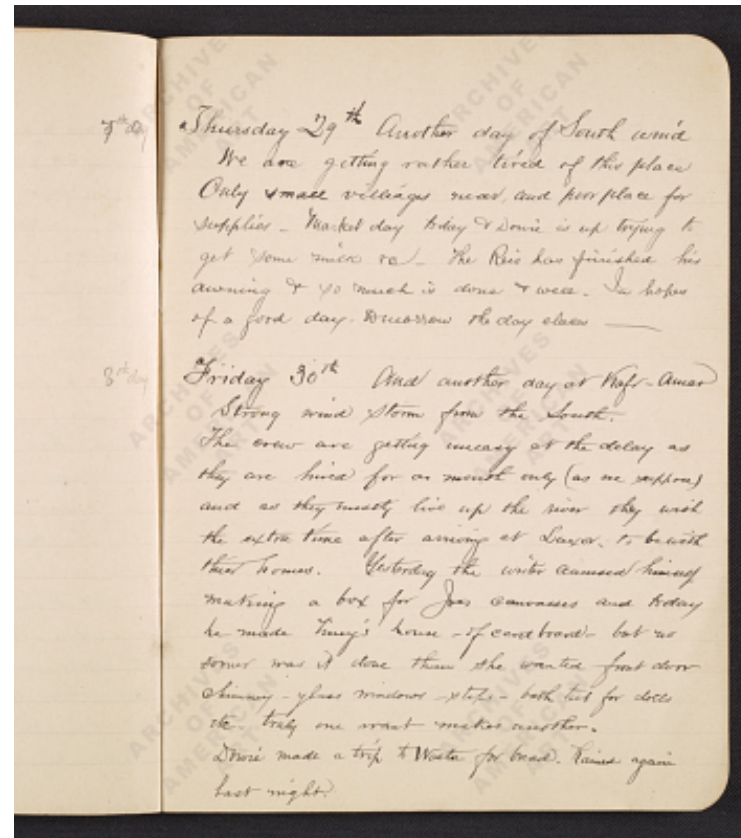 7th day
Thursday 29th Another day of South wind
We are getting rather tired of this place
Only small villiages near and poor place for
supplies - Market day today & Dowie is up trying to
get some milk &c - The Reis has finished his
awning & so much is done & well - In hopes
of a good day tomorrow the day closes —
8th day
Friday 30th And another day at Kafr-Amar
Strong wind storm from the South.
The crew are getting uneasy at the delay as
they are hired for a month only (as we suppose)
and as they mostly live up the river they wish
the extra time after arriving at Luxor, to be with
their homes. Yesterday the writer amused himself
making a box for Joes canvasses and today
he made house - of cardboard - but no
sooner was it done than she wanted front door
chimney - glass windows - steps - bath tub for dolls
etc - truly one want makes another.
Dowie made a trip to Wasta for bread. Rained again
last night.
ARCHIVES
OF
AMERICAN
ART